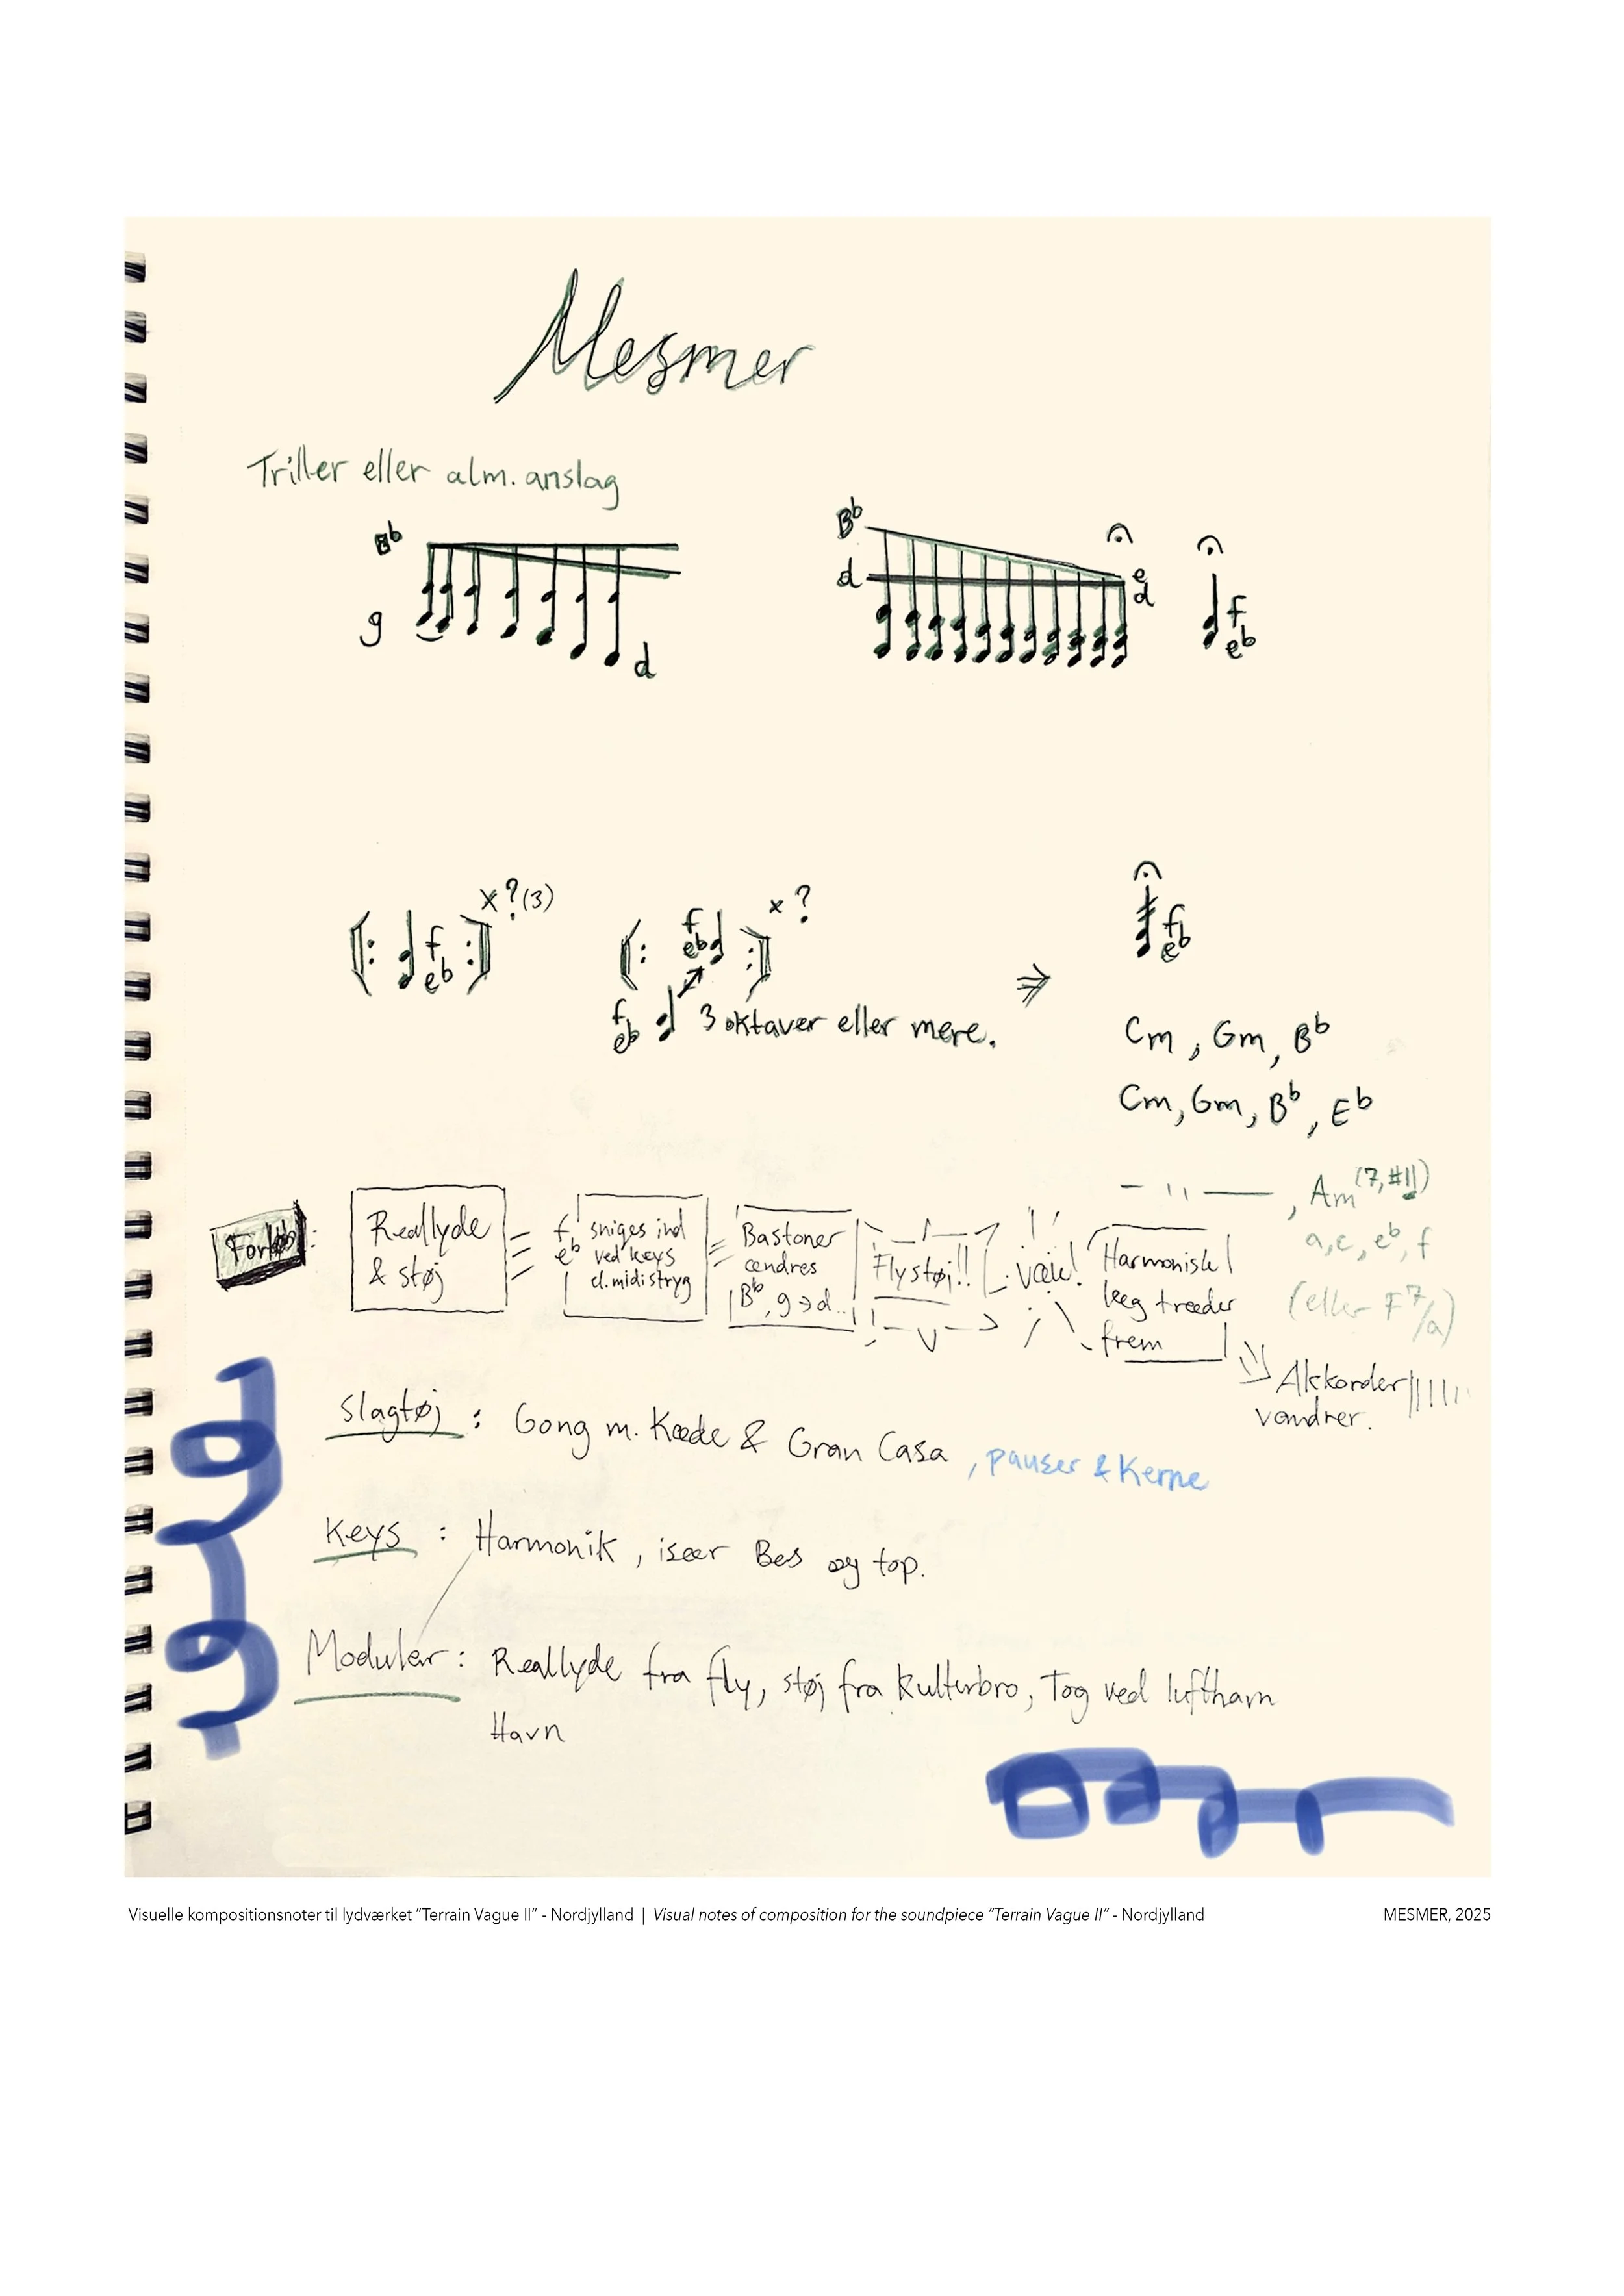 Mesmer
Triller eller alm. anslag
Bb
g
d
Bb
d
e
d
f
eb
x ? (3)
f
eb
x ?
f
eb
f
eb
3 oktaver eller mere.
f
eb
Cm, Gm, Bb
Cm, Gm, Bb, Eb
— " — , Am(7,#11)
a, c, eb, f
(eller F7/a)
Forløb:
Reallyde
& støj
f
eb
sniges ind
ved keys
el. midistryg
Bastoner
ændres
Bb, g → d..
Flystøj!!
væk!
Harmonisk
leg træder
frem
Akkorder
vandrer.
Slagtøj : Gong m. Kæde & Gran Casa, pauser & Kerne
Keys : Harmonik, især Bas og top.
Modular: Reallyde fra fly, støj fra Kulturbro, Tog ved lufthavn
Havn
Visuelle kompositionsnoter til lydværket "Terrain Vague II" - Nordjylland | Visual notes of composition for the soundpiece "Terrain Vague II" - Nordjylland
MESMER, 2025